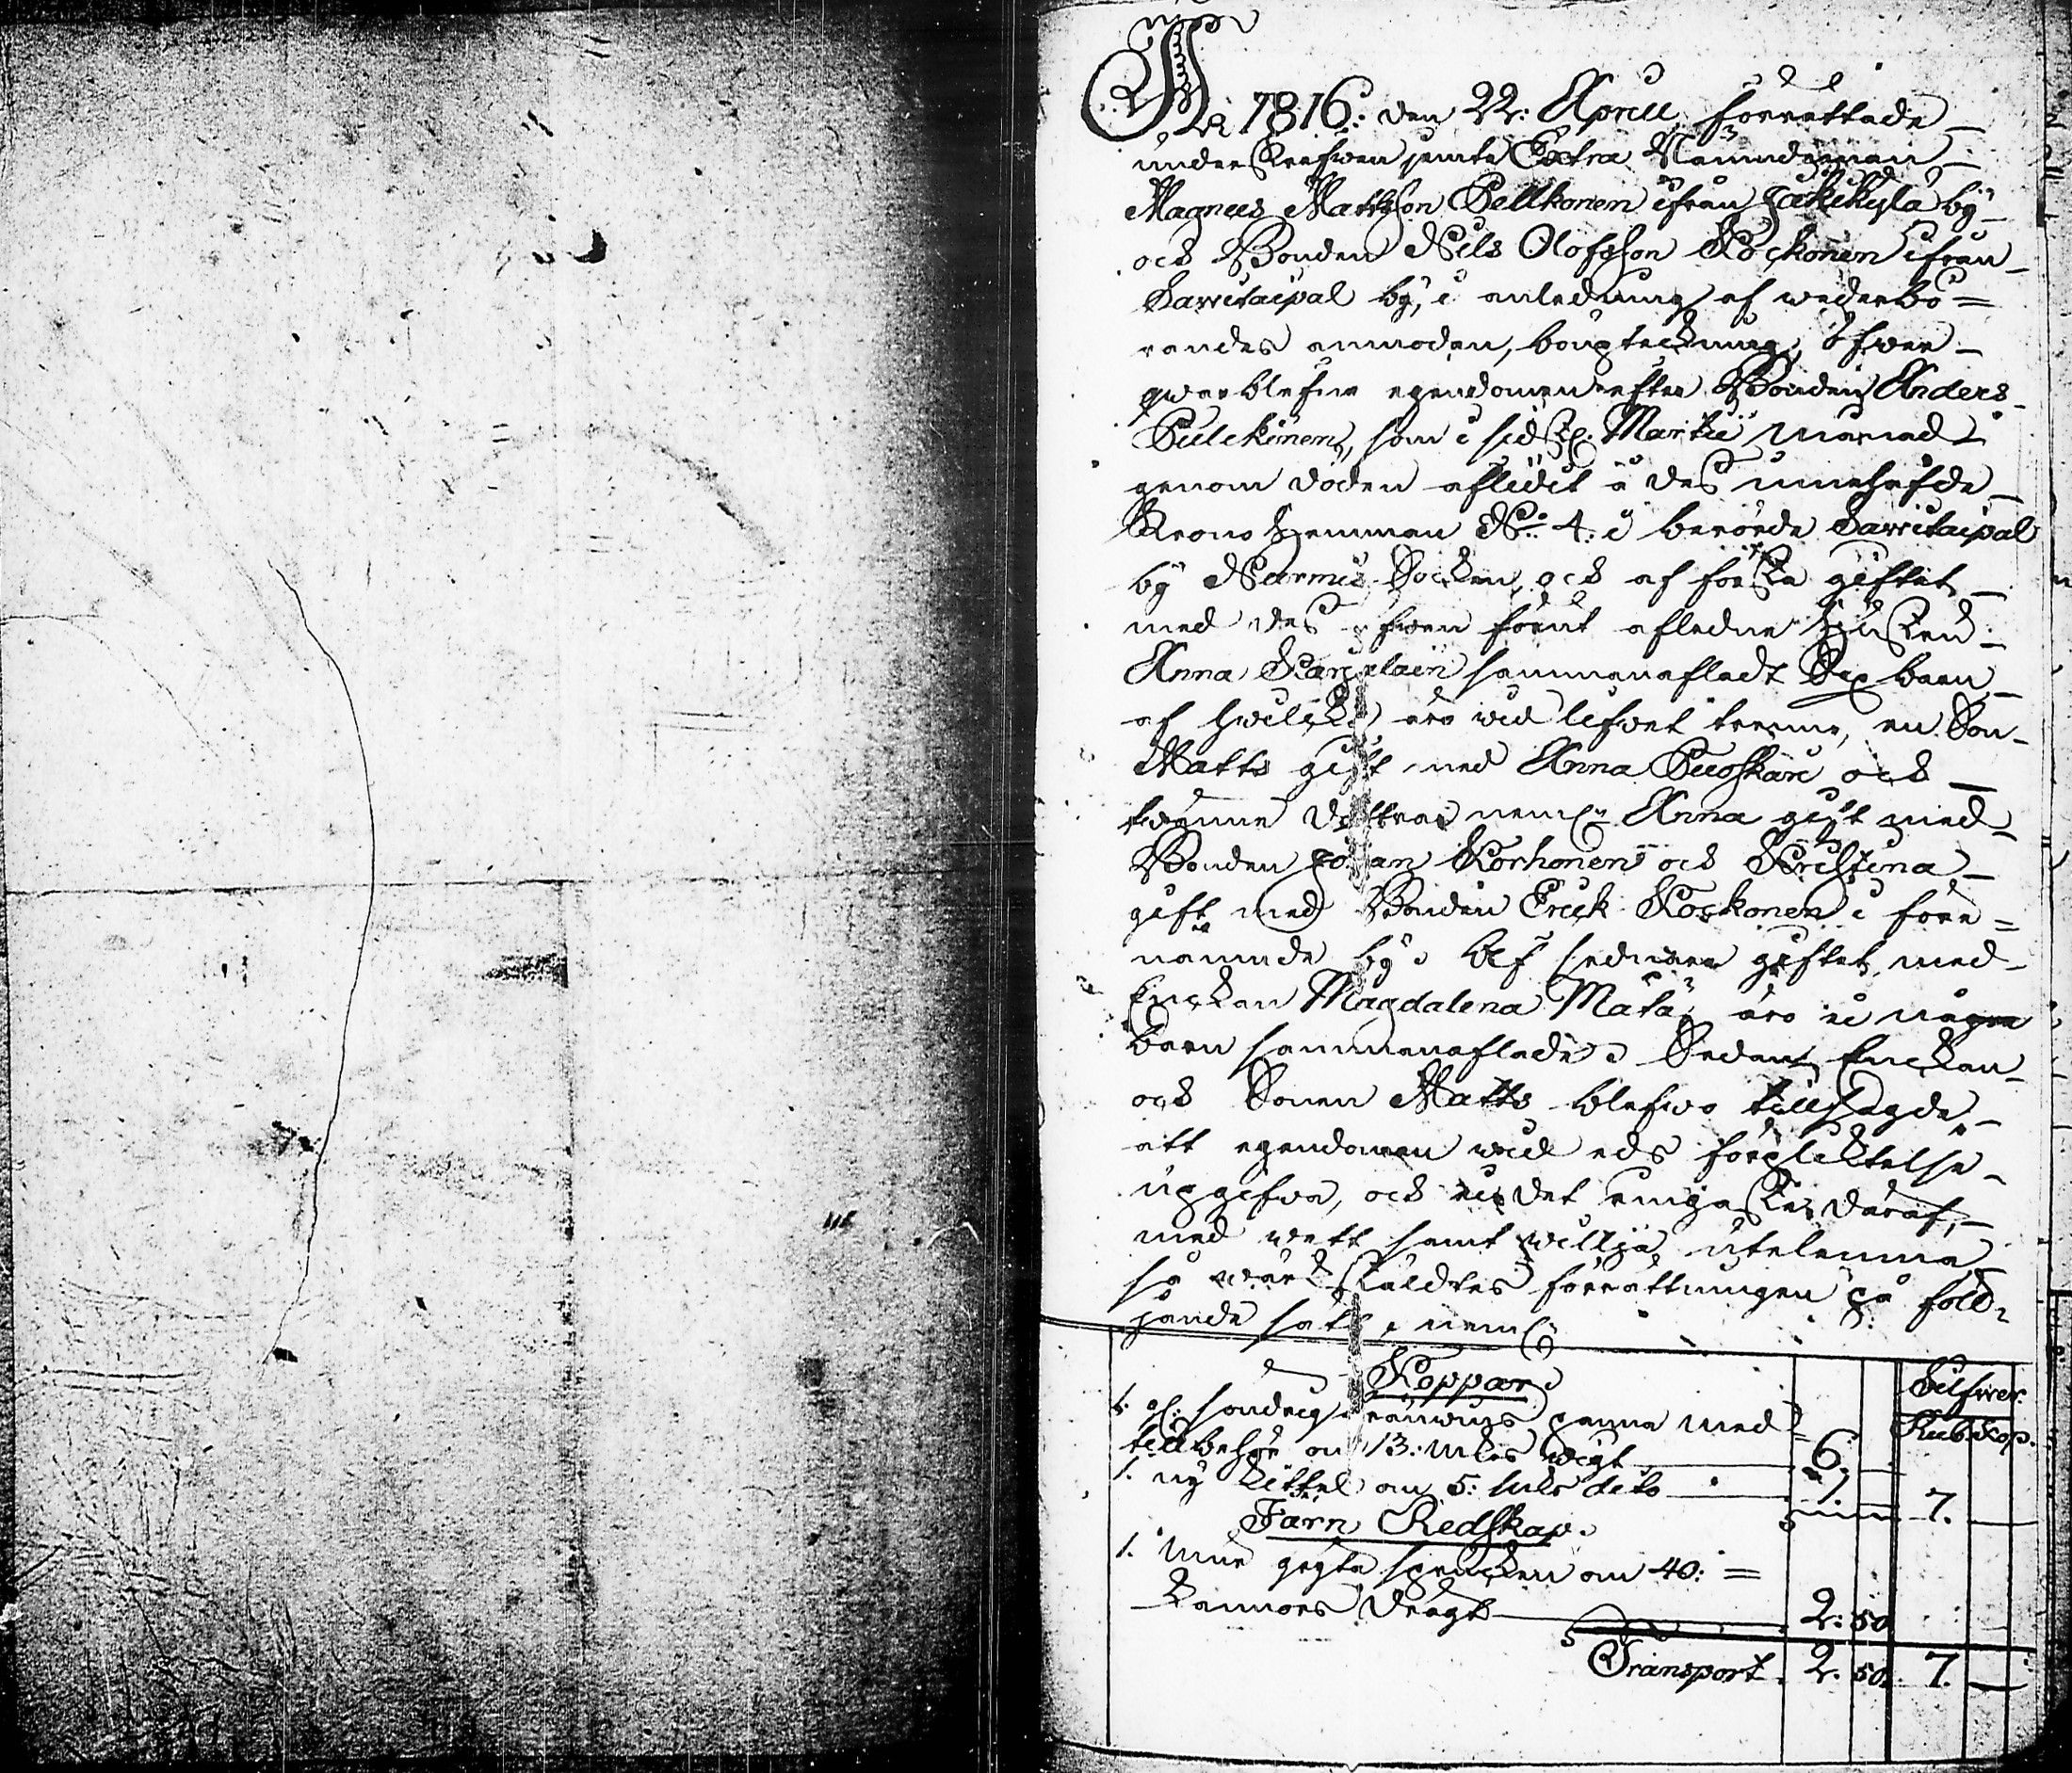 År 1816: den 22: April förrättade
underskrefwen jemte Extra Nämndeman
Magnus Mattsson Pellkonen ifrån Jäkikylä by
och Bonden Nils Olofsson Kockonen ifrån
Sawitaipal by, i anledning af wederbö=
randes anmodan, bouptekning öfwer
qwarblefne egendomen efter Bonden Anders
Pulckinen, som i sidstl. Martii månad
genom döden aflidit å dess innehafde
Krono hemman No. 4: i berörde Sawitaipal
by Nurmis Socken, och af första giftet
med dess förut afledne hustru
Anna Karjalain sammanafladt Sex barn
af hwilcka äro wid lifwet trenne, en Son
Matts gift med Anna Puoskari och
twänne döttrar neml. Anna gift med
Bonden Johan Korhonen och Kristina
gift med Bonden Erick Koskonen i före=
nämnde by. Af sednare giftet med
Enckan Magdalena Mätä, äro ei några
barn sammanaflade. Sedan Enckan
och Sonen Matts blefwo tillsagde
att egendomen wid eds förplicktelse
uppgifwa, och ei det ringaste däraf,
med wett samt willja utelemna
så wärckställdtes förrättningen på föld=
jande sätt, neml.
Koppar
Silfwer.
Rub. Kop.
1. st: sönderig bränwins panna med
tillbehör om 13: mks wigt 6.
1. ny kittel om 5: mks dito 1. 7.
Järn Redskap.
1. Mur gryta sprucken om 40: =
kannors drägt 2: 50
Transport. 2. 50. 7.